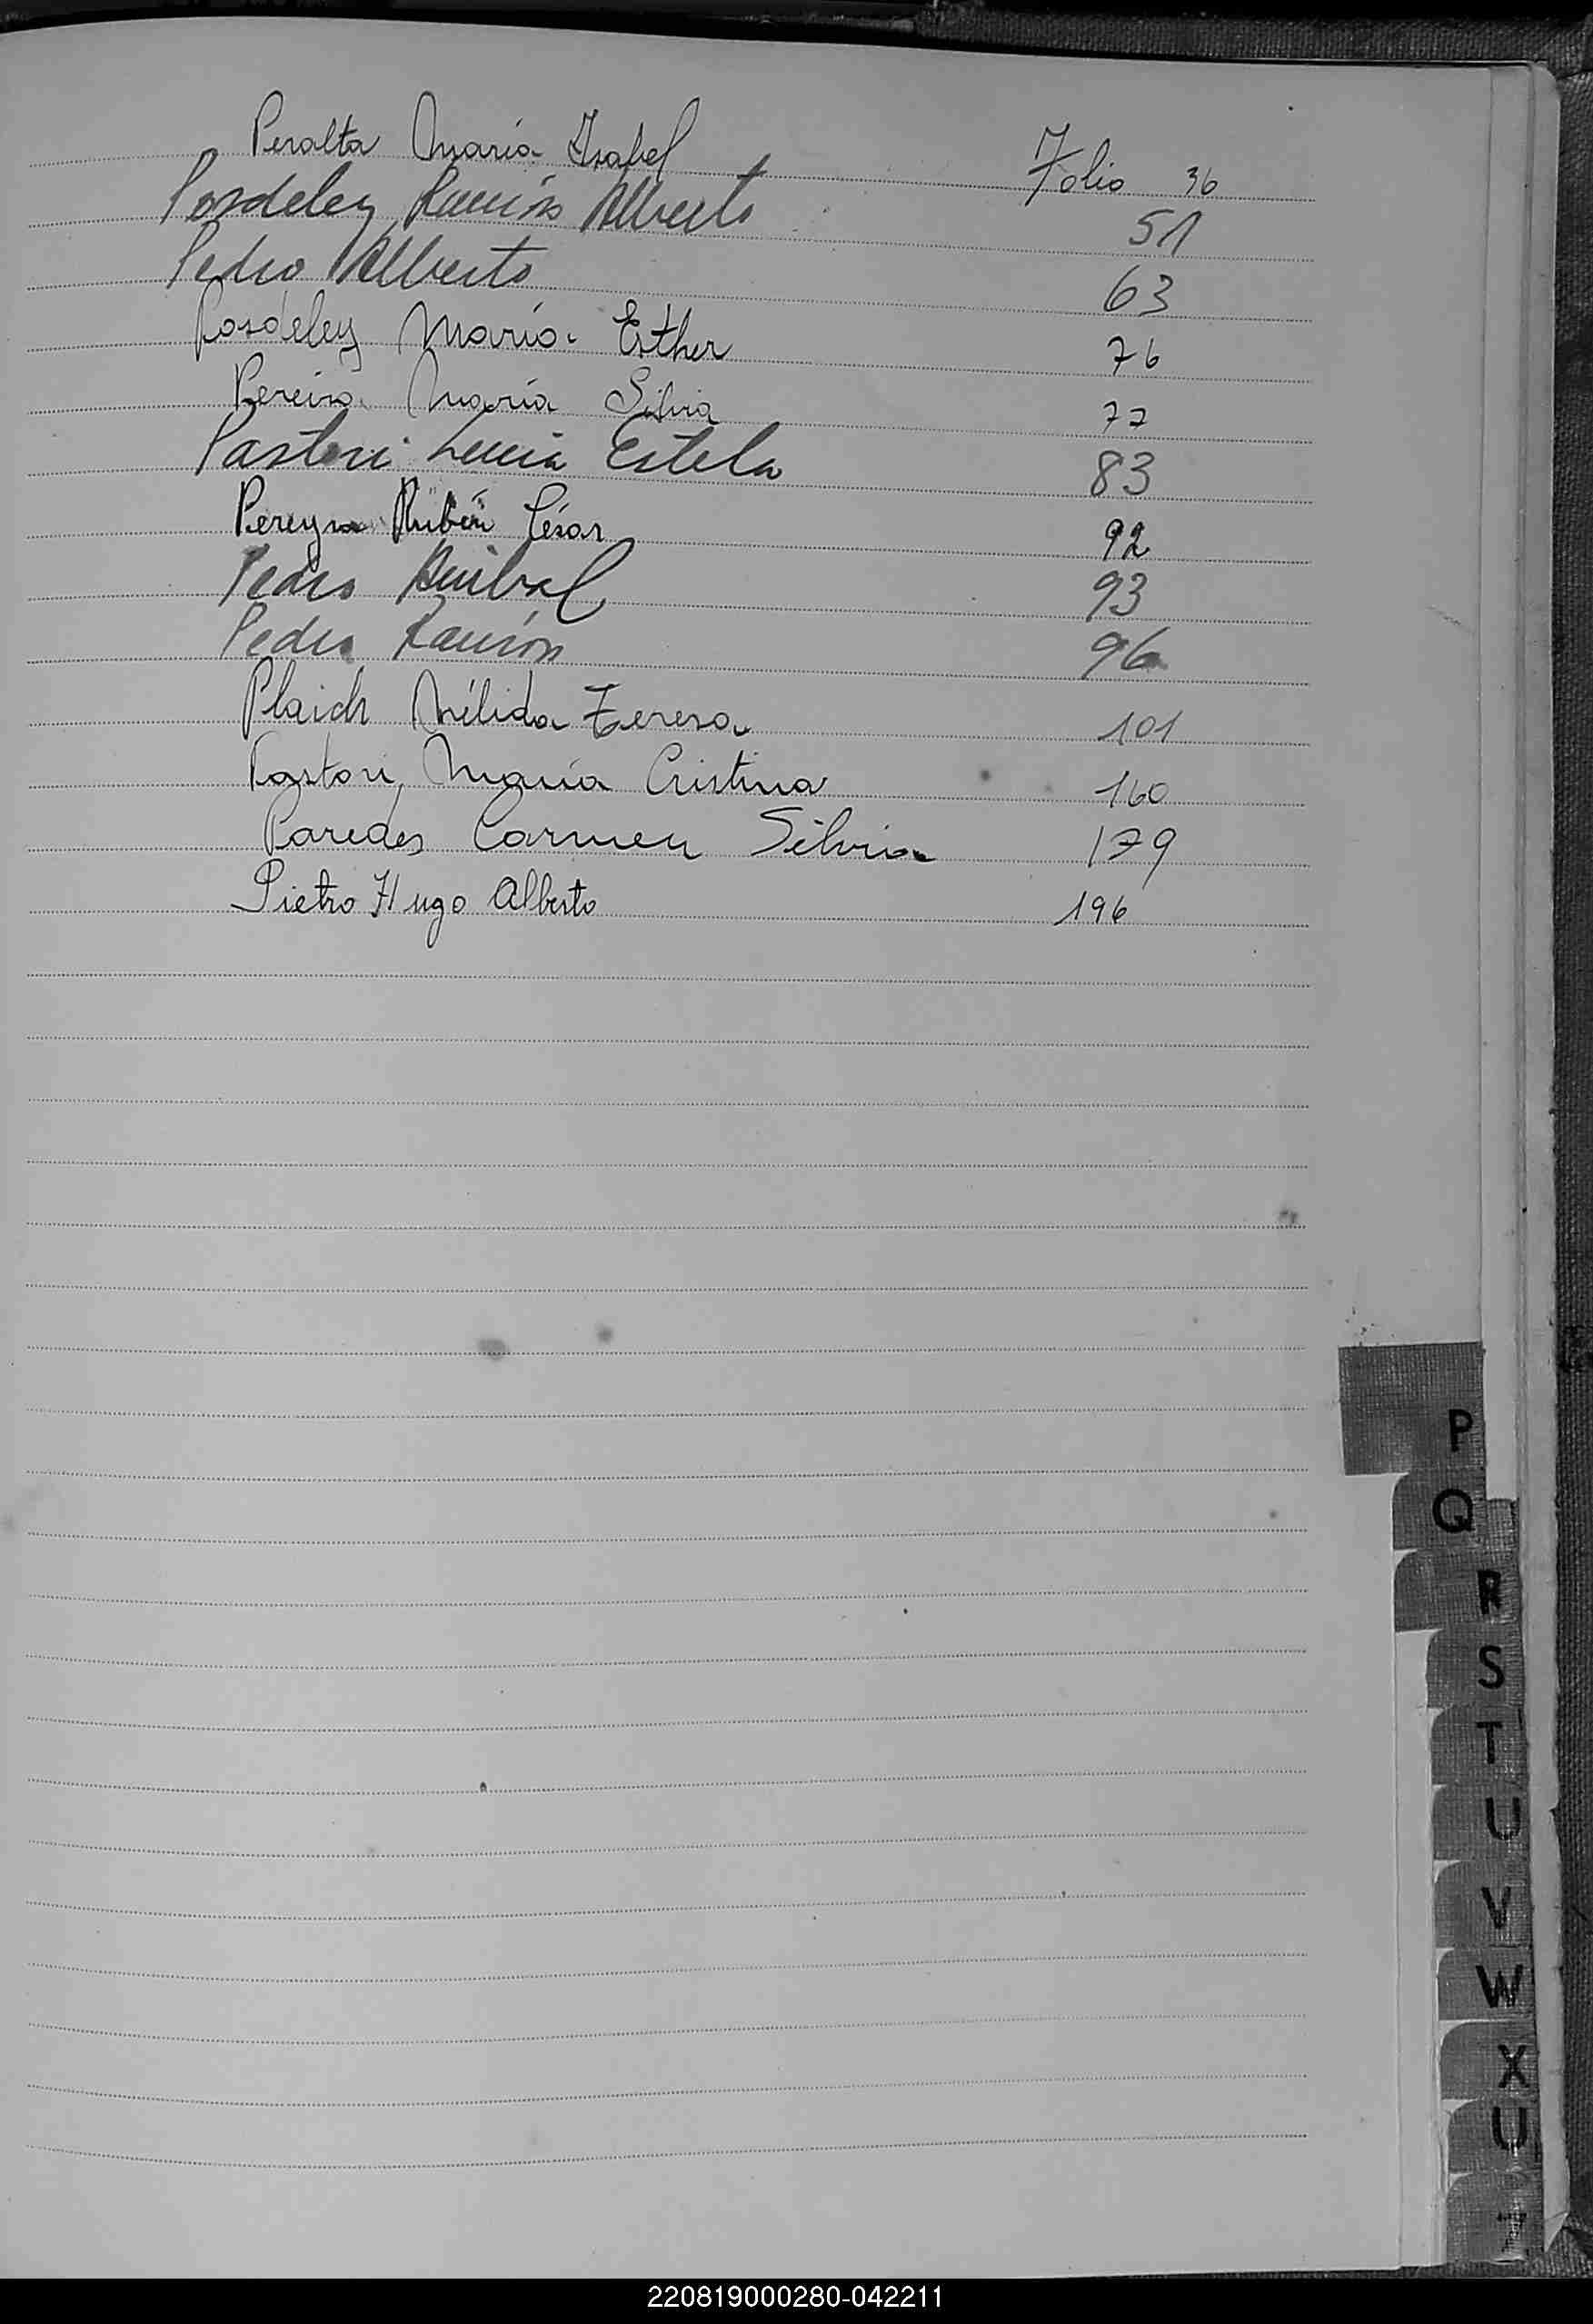 Peralta María Isabel Folio 36
Posdeley Ramón Alberto 51
Pedro Alberto 63
Posdeley María Esther 76
Pereira María Silvia 77
Pastori Lucia Estela 83
Pereyra Rubén César 92
Pedro Anibal 93
Pedro Ramón 96
Plaich Nélida Teresa 101
Pastori, María Cristina 160
Paredes Carmen Silvia 179
Pietro Hugo Alberto 196
P
Q
R
S
T
U
V
W
X
U
Z
220819000280-042211